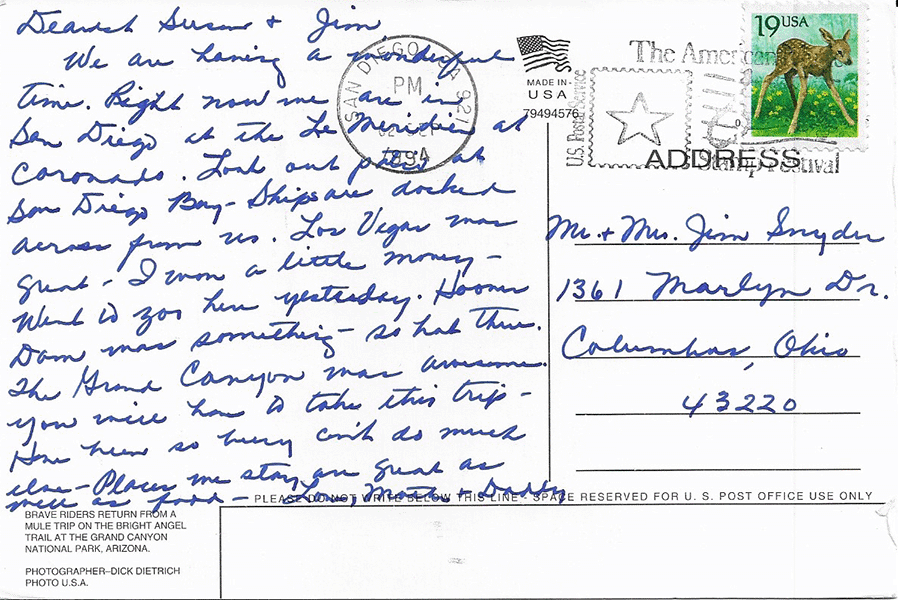 Dearest Susan + Jim,
We are having a wonderful
time. Right now we are in
San Diego at the Le Meridien at
Coronado. Look out patio at
San Diego Bay - Ships are docked
across from us. Las Vegas was
great - I won a little money -
Went to zoo here yesterday. Hoover
Dam was something - so hot there.
The Grand Canyon was awesome.
You will have to take this trip -
Have been so busy can't do much
else - Places we stay are great as
well as food - Love, Mom + Daddy
SAN DIEGO, CA 921
PM
1994
MADE IN
USA
79494576
19 USA
The American
U.S. Postal Service
Stamp Festival
ADDRESS
Mr. + Mrs. Jim Snyder
1361 Marlyn Dr.
Columbus, Ohio
43220
PLEASE DO NOT WRITE BELOW THIS LINE - SPACE RESERVED FOR U. S. POST OFFICE USE ONLY
BRAVE RIDERS RETURN FROM A
MULE TRIP ON THE BRIGHT ANGEL
TRAIL AT THE GRAND CANYON
NATIONAL PARK, ARIZONA.
PHOTOGRAPHER–DICK DIETRICH
PHOTO U.S.A.